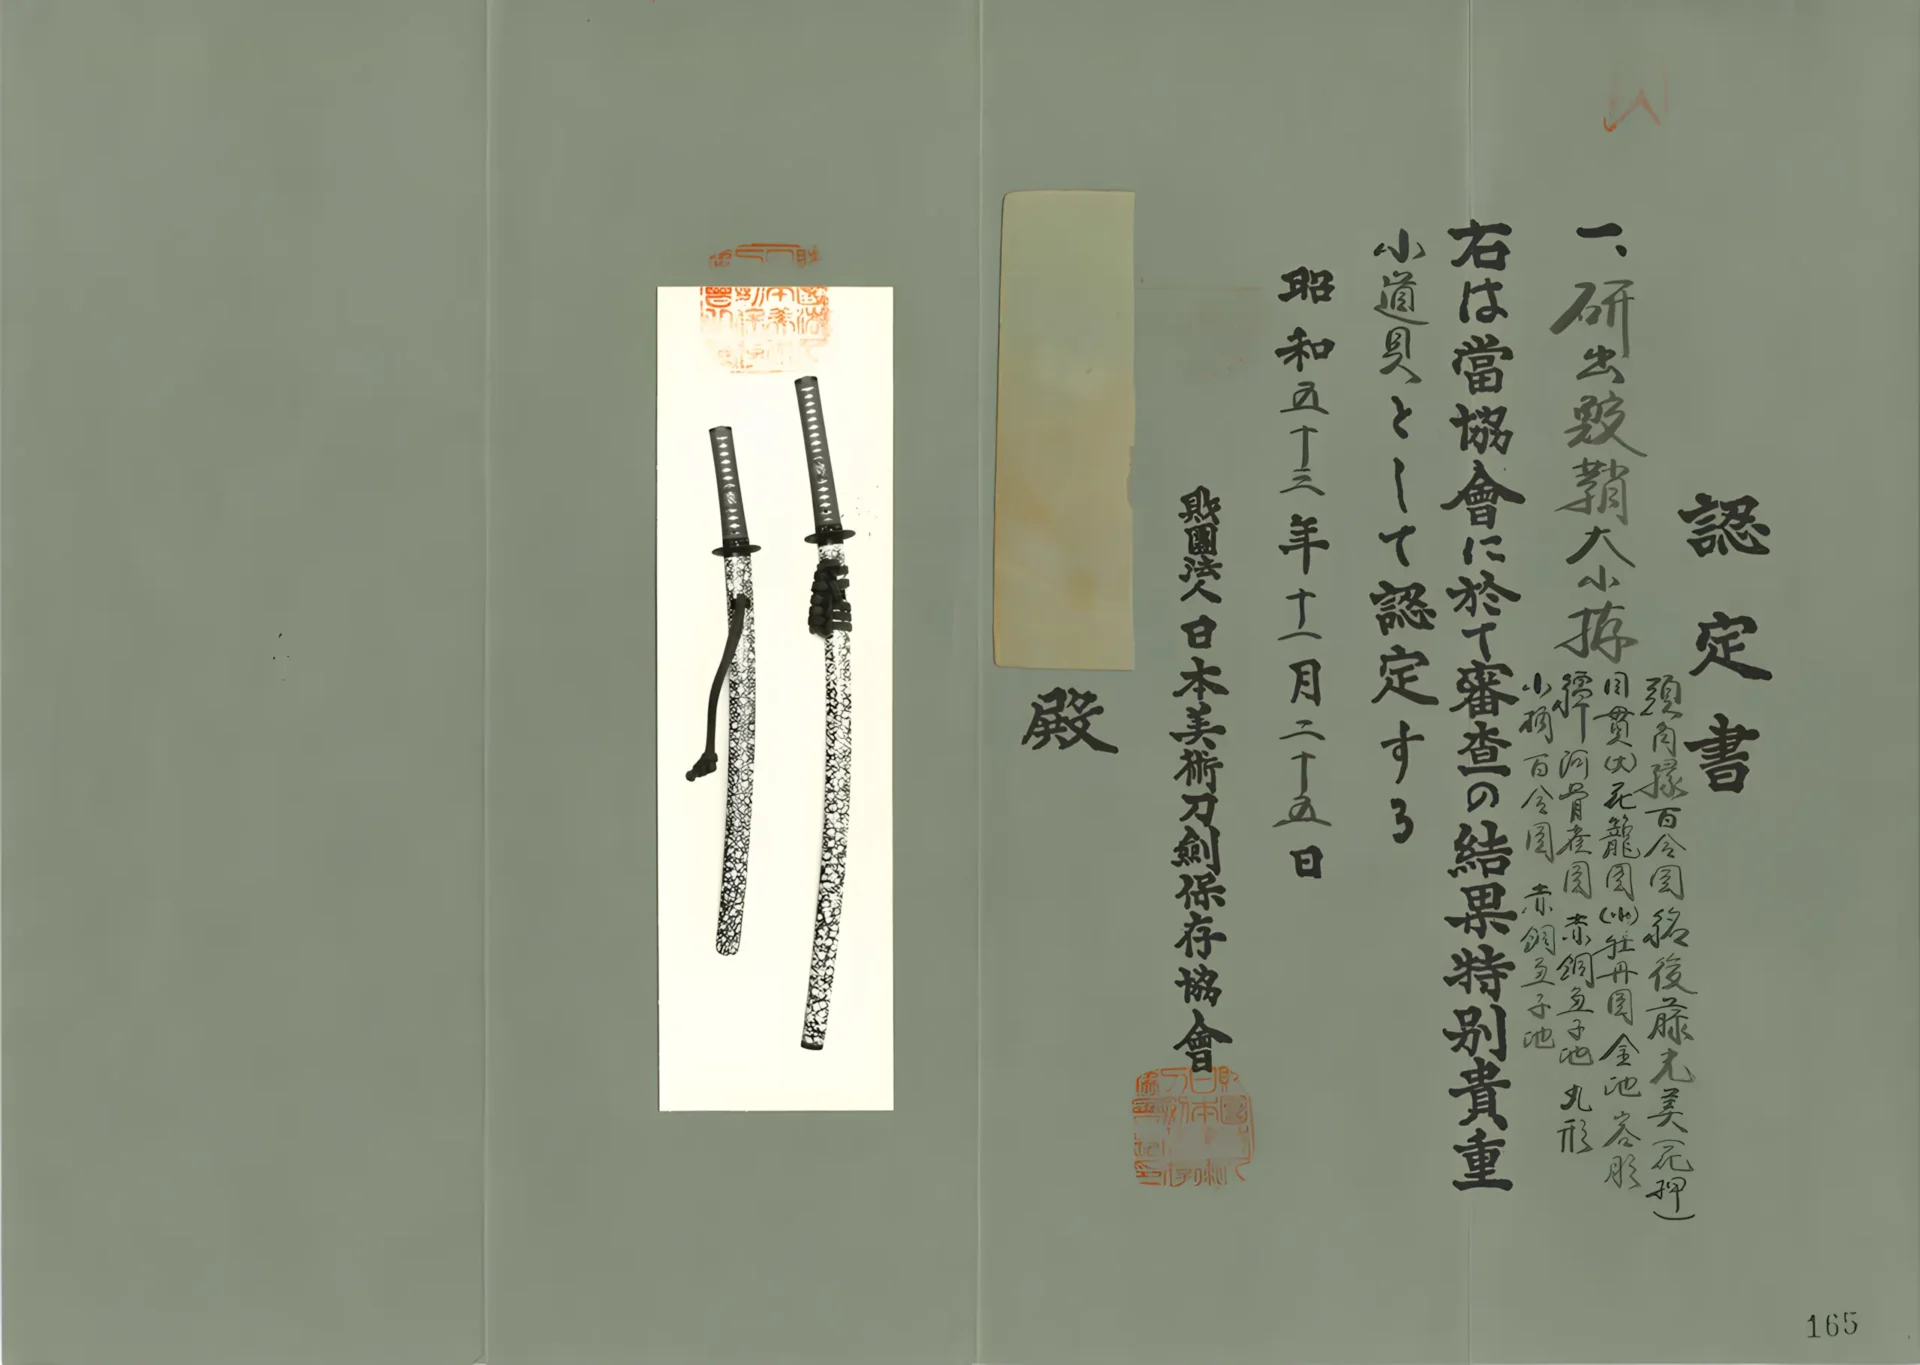 認定書
一、研出鮫鞘大小拵
頭角縁百合図銘後藤光美(花押)
目貫(大)花籠図(小)牡丹図金地容彫
鐔河骨崔図赤銅魚子地丸形
小柄百合図赤銅魚子地
右は當協會に於て審査の結果特別貴重
小道具として認定する
昭和五十三年十一月二十五日
財團法人日本美術刀劍保存協會
殿
165